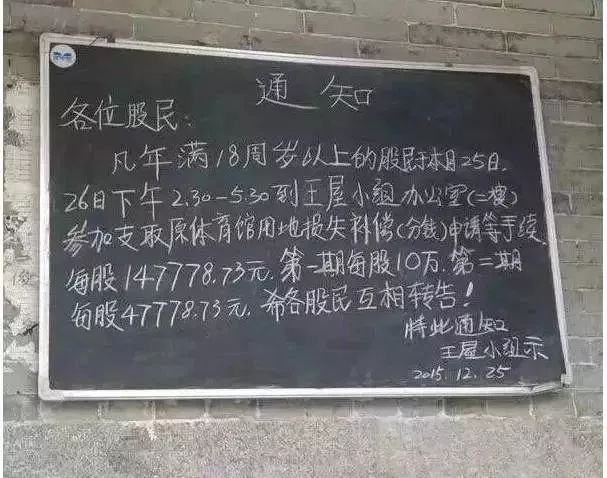 通知
各位股民:
凡年满18周岁以上的股民于本月25日.
26日下午2.30-5.30到王屋小组办公室(二楼)
参加支取原体育馆用地损失补偿(分钱)申请等手续.
每股147778.73元.第一期每股10万.第二期
每股47778.73元.希各股民互相转告!
特此通知
王屋小组示
2015.12.25